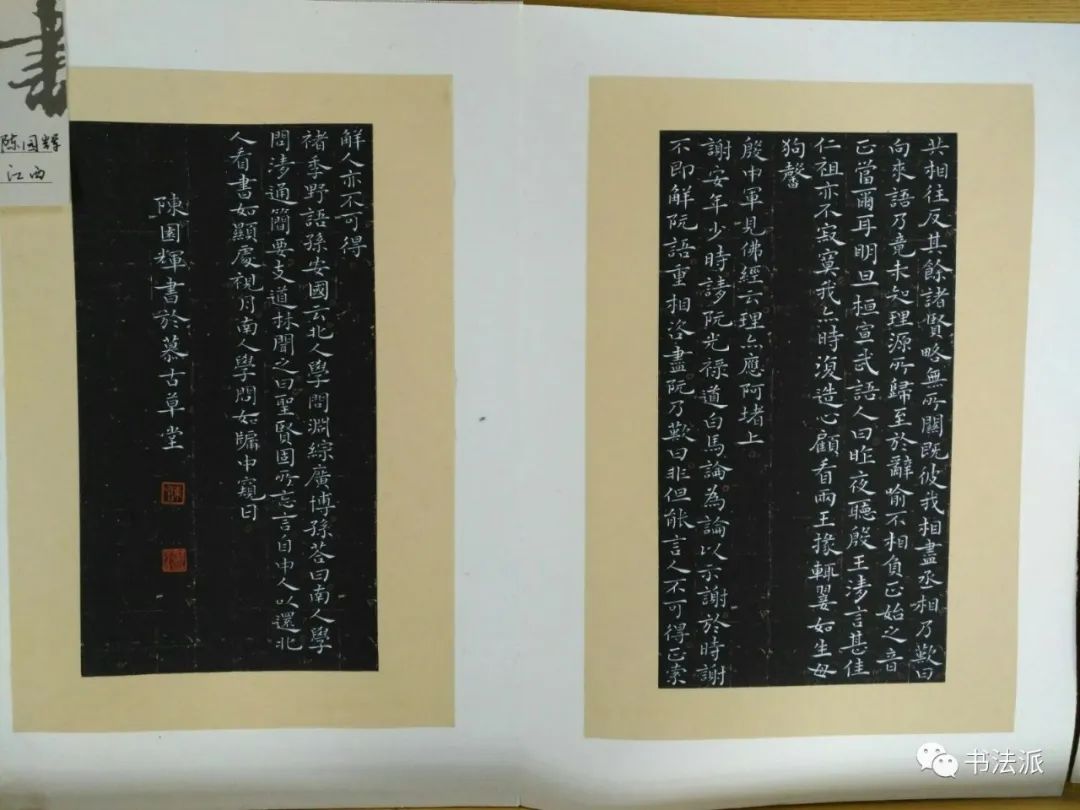 共相往反其餘諸賢略無所關既彼我相盡丞相乃歎曰
向來語乃竟未知理源所歸至於辭喻不相負正始之音
正當爾耳明旦桓宣武語人曰昨夜聽殷王清言甚佳
仁祖亦不寂寞我亦時復造心顧看兩王掾輒翣如生母
狗馨
殷中軍見佛經云理亦應阿堵上
謝安年少時請阮光祿道白馬論為論以示謝於時謝
不即解阮語重相咨盡阮乃歎曰非但能言人不可得正索
解人亦不可得
褚季野語孫安國云北人學問淵綜廣博孫荅曰南人學
問清通簡要支道林聞之曰聖賢固所忘言自中人以還北
人看書如顯處視月南人學問如牖中窺日
陳國輝書於慕古草堂
書
陈国辉
江西
书法派